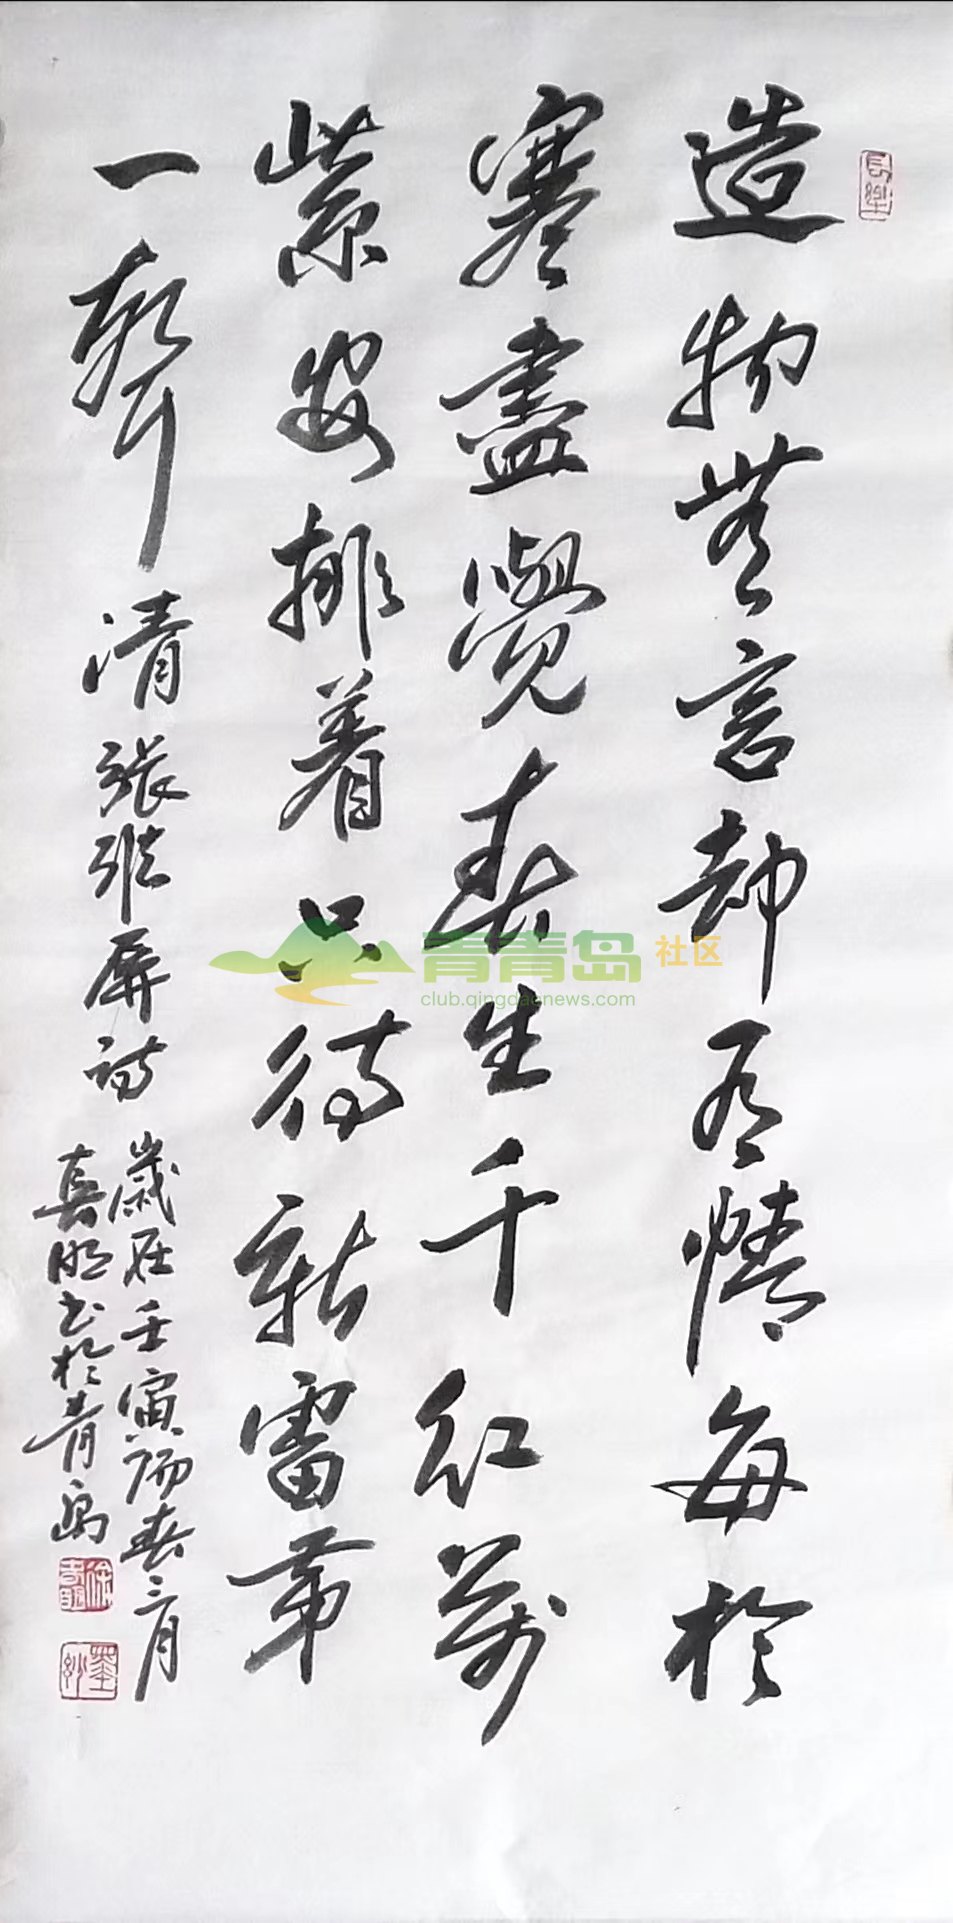 長樂
造物無言却有情每於
寒盡覺春生千红萬
紫安排着只待新雷第
一聲 清張維屏詩
歲在壬寅陽春三月
明书於青島
青青岛社区
club.qingdaonews.com